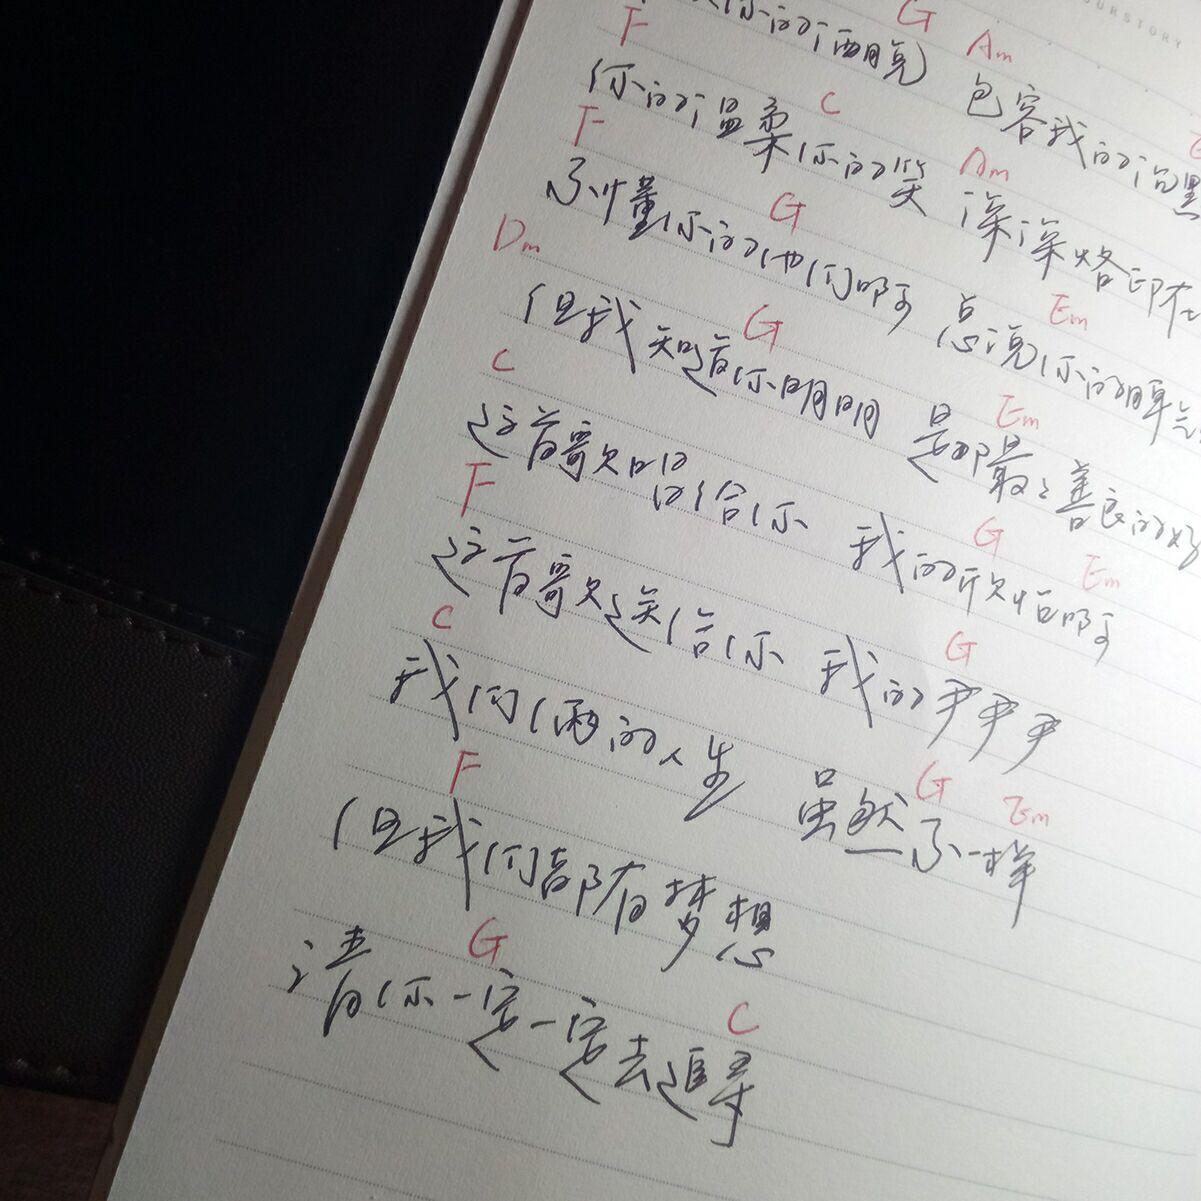 OURSTORY
G Am
你的酒脱 包容我的沉默
F C
你的温柔你的笑 深深烙印在
F G Am
不懂你的他们啊 总说你的脾气
Dm G Em
但我知道你明明 是那最最善良的好
C Em
这首歌唱给你 我的欣怡啊
F G Em
这首歌送给你 我的尹尹尹
C G
我们俩的人生 虽然不一样
F G Em
但我们都有梦想
G C
请你一定一定去追寻